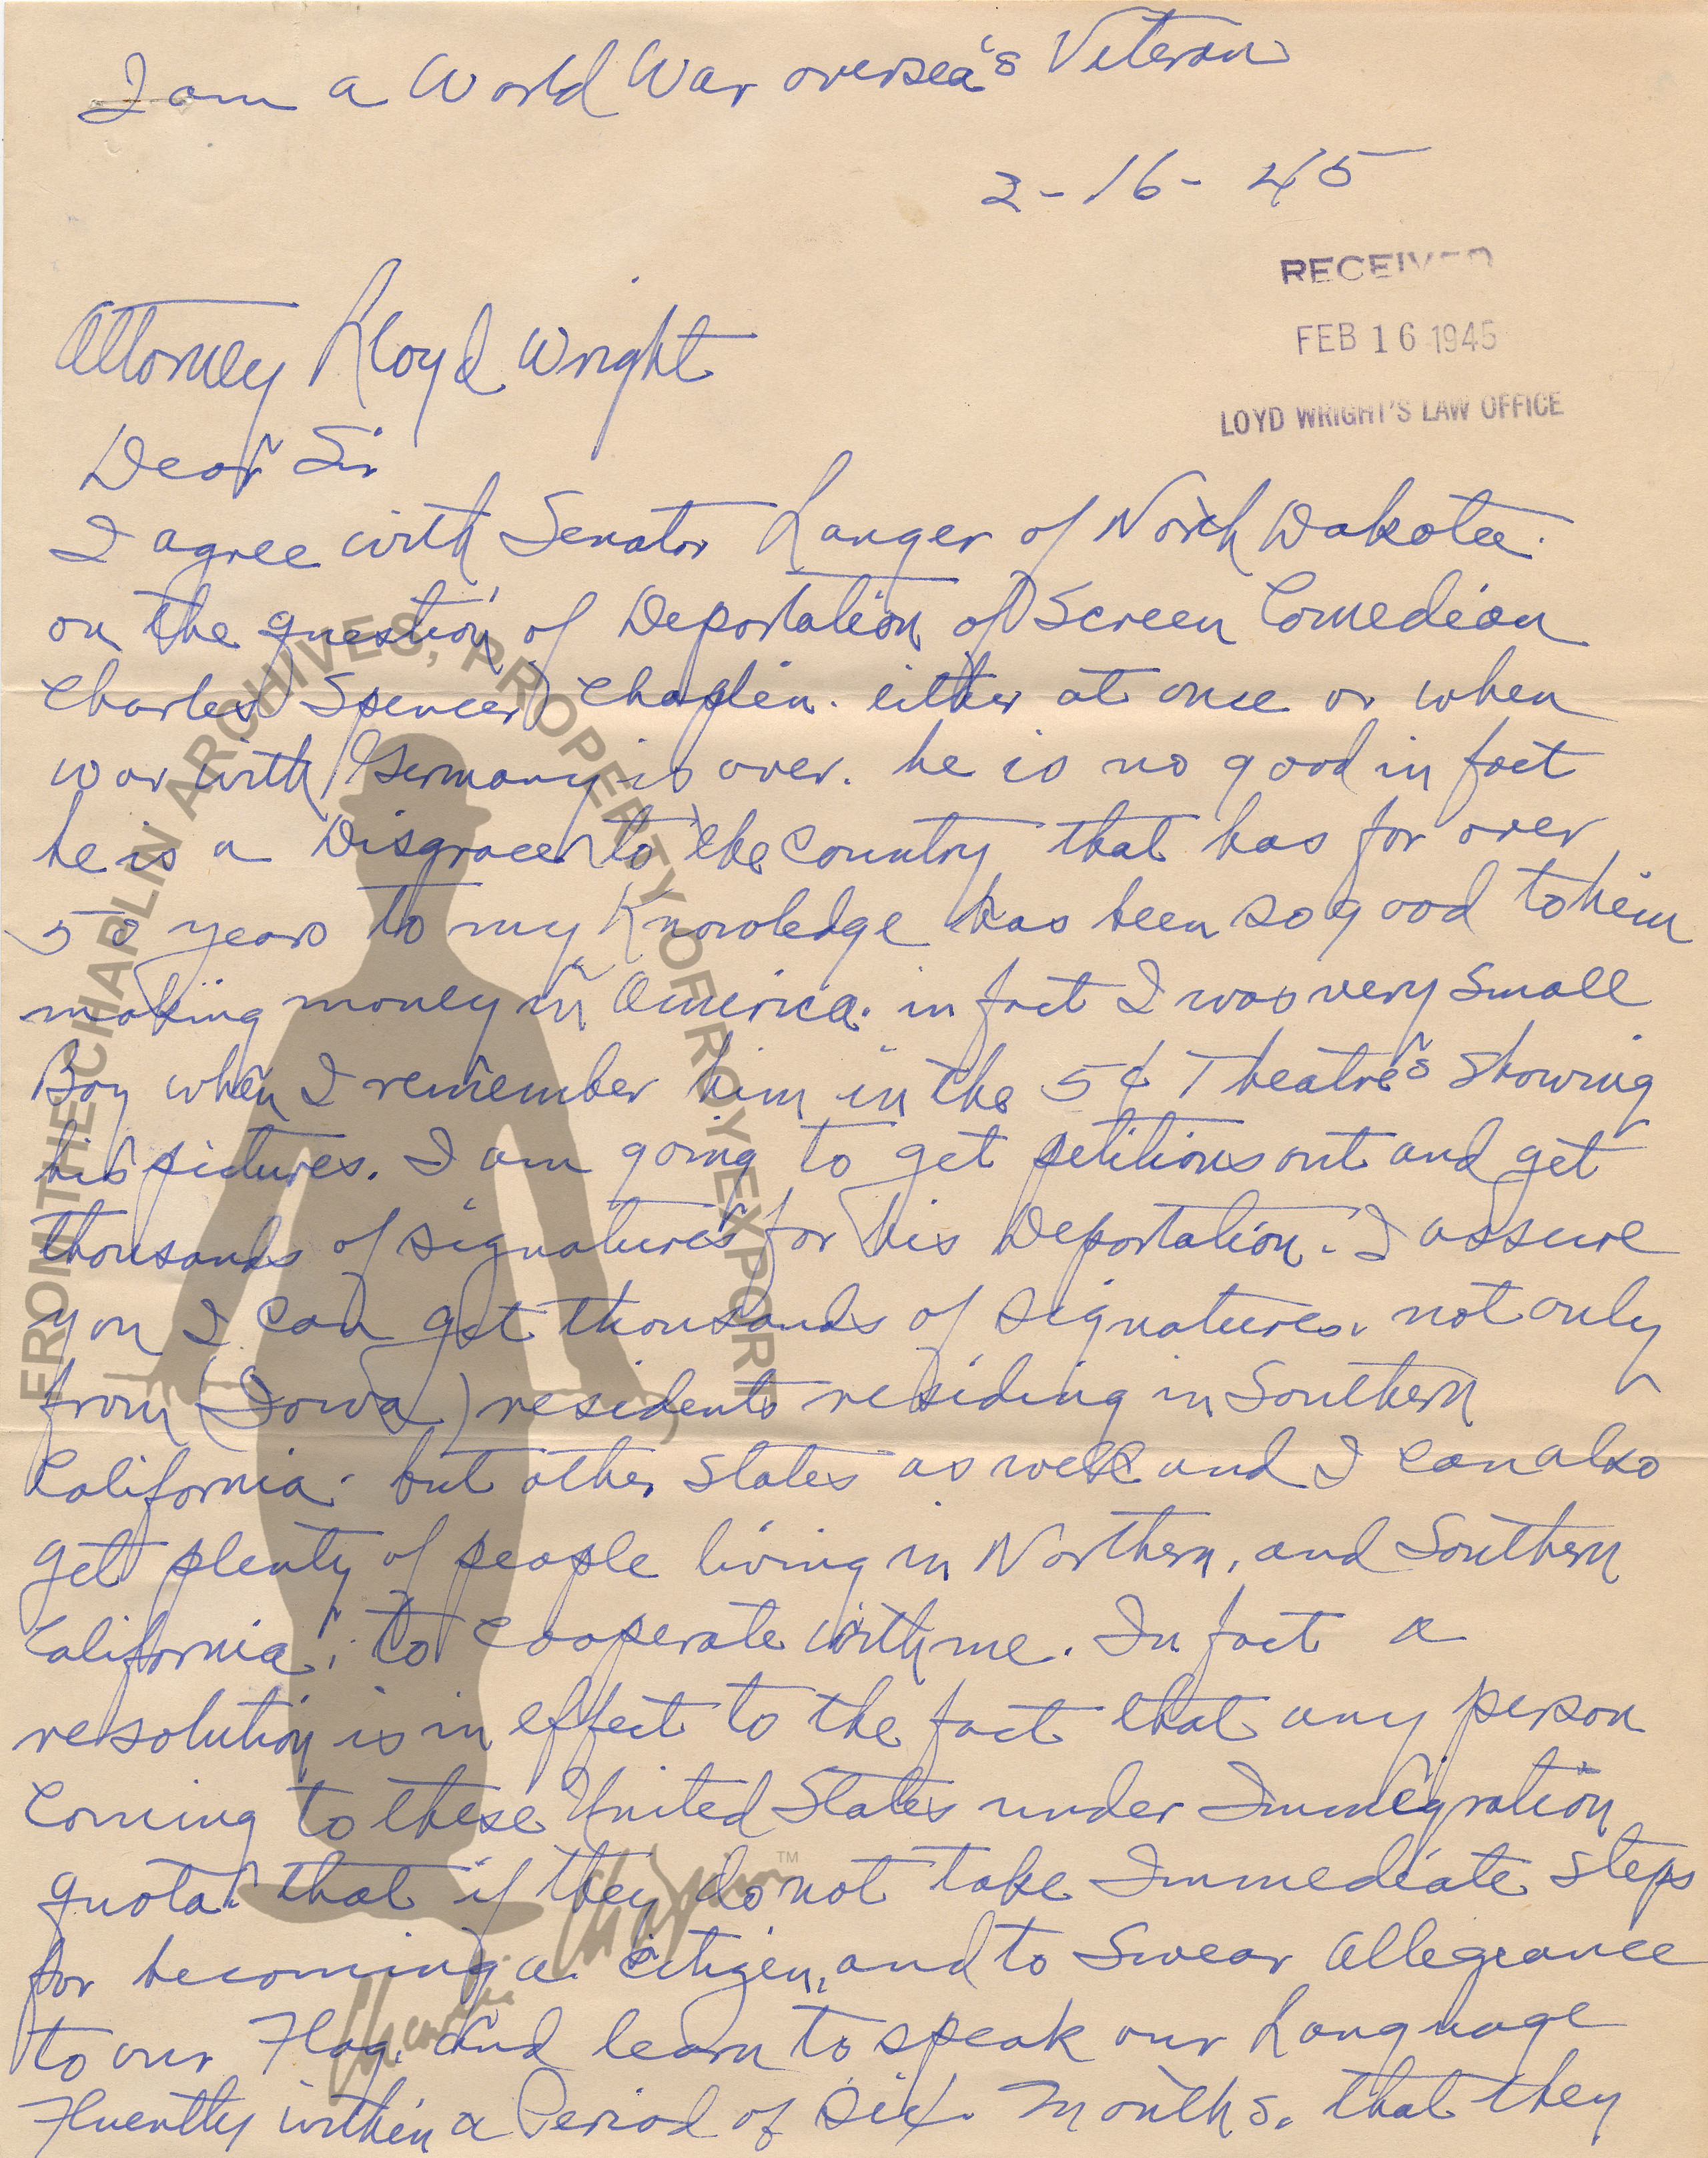 I am a World War oversea's Veteran
2-16-45
RECEIVED
FEB 16 1945
LOYD WRIGHT'S LAW OFFICE
Attorney Lloyd Wright
Dear Sir
I agree with Senator Langer of North Dakota.
on the question of Deportation of Screen Comedian
Charles Spencer Chaplin. either at once or when
war with Germany is over. he is no good in fact
he is a Disgrace to the Country that has for over
50 years to my Knowledge has been so good to him
making money in America. in fact I was very Small
Boy when I remember him in the 5¢ Theatre's Showing
his pictures. I am going to get petitions out and get
thousands of signatures for his Deportation. I assure
you I can get thousands of signatures. not only
from (Iowa) residents residing in Southern
California. but other States as well and I can also
get plenty of people living in Northern, and Southern
California, to cooperate with me. In fact a
resolution is in effect to the fact that any person
Coming to these United States under Immigration
quota. that if they do not take Immediate Steps
for becoming a citizen, and to Swear allegiance
to our Flag. and learn to speak our Language
Fluently within a Period of six. Months. that they
FROM THE CHAPLIN ARCHIVES, PROPERTY OF ROY EXPORT
Charlie Chaplin TM